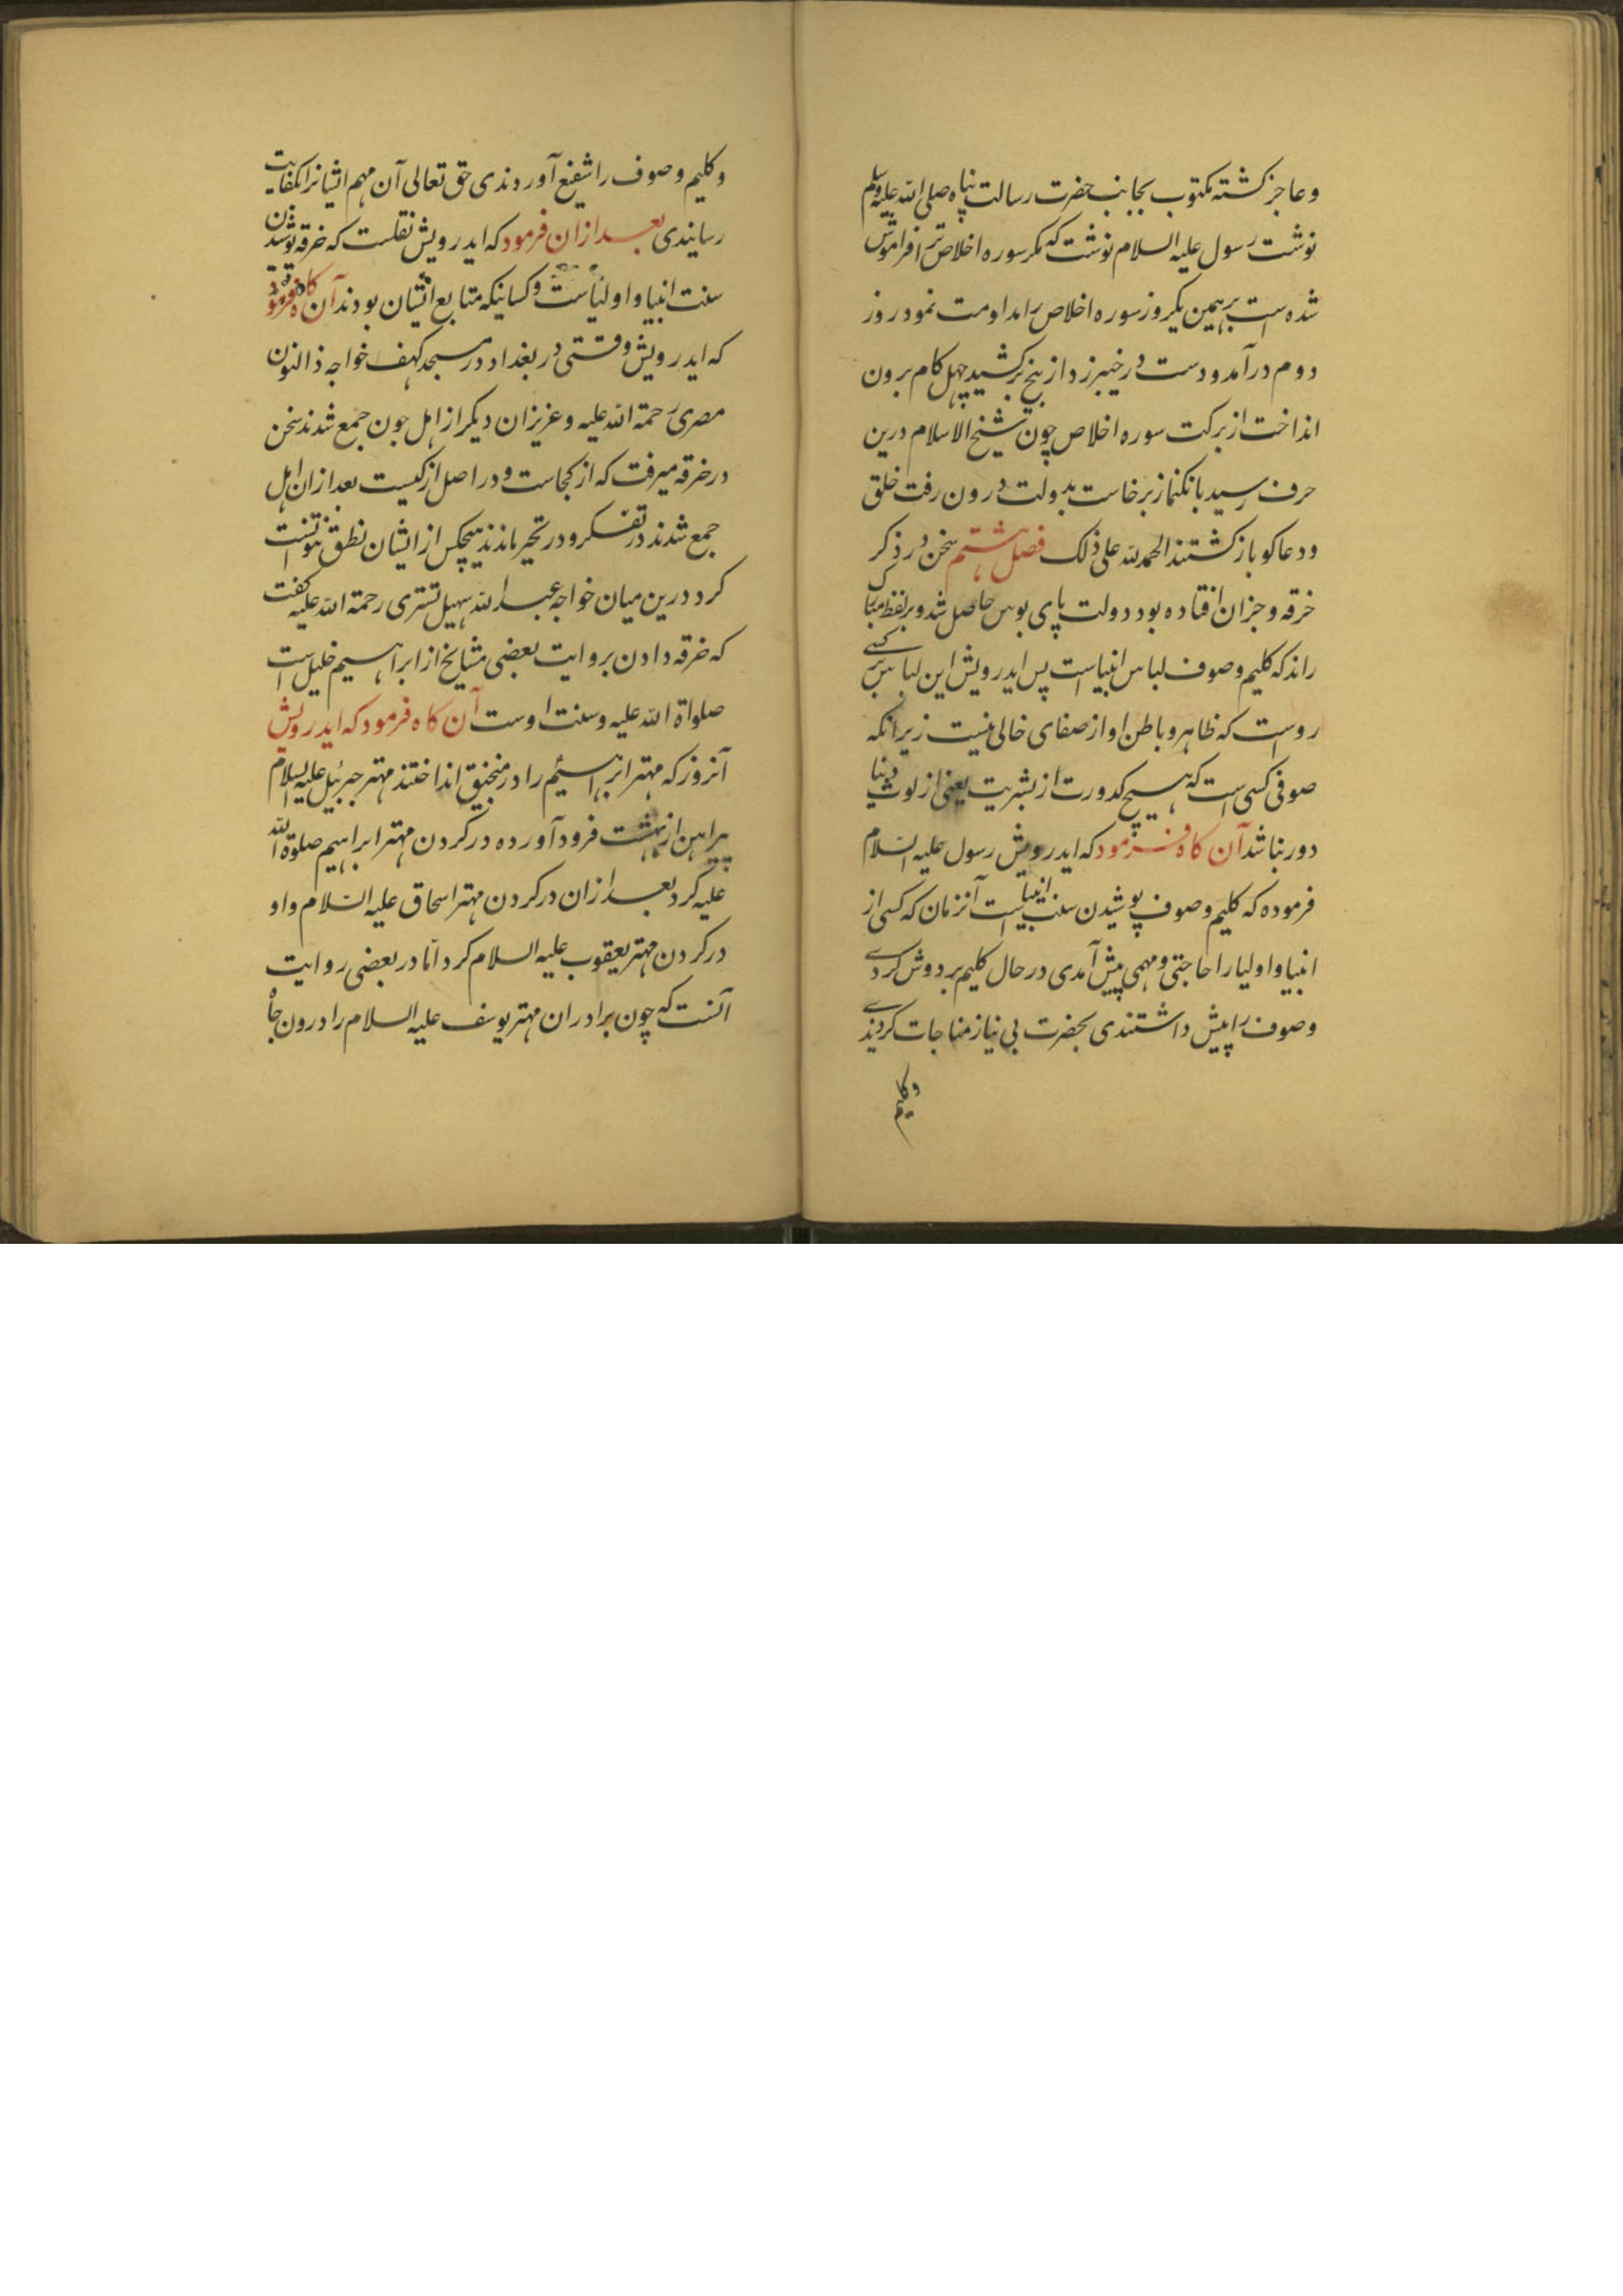 وعاجز کشته مکتوب بجانب حضرت رسالت پناه صلی الله علیه وسلم
نوشت رسول علیه السلام نوشت که مکر سوره اخلاص ترا فراموش
شده است برهمین یکروز سوره اخلاص را مداومت نمود روز
دوم درآمد ودست در خیبر زد از بیخ برکشید چهل کام برون
انداخت از برکت سوره اخلاص چون شیخ الاسلام درین
حرف رسید بانکنماز برخاست بدولت درون رفت خلق
ودعاکو بازکشتند الحمد لله علی ذلک فصل هشتم سخن در ذکر
خرقه وجز ان افتاده بود دولت پای بوس حاصل شد وبر لفظ مبارک
راند که کلیم وصوف لباس انبیاست پس ایدرویش این لباس کسی
رواست که ظاهر وباطن او از صفای خالی نیست زیرانکه
صوفی کسی است که هیچ کدورت از بشریت یعنی از لوث دنیا
دور نباشد آن کاه فرمود که ایدرویش رسول علیه السلام
فرموده که کلیم وصوف پوشیدن سنت انبیاست آنزمان که کسی از
انبیا واولیا را حاجتی ومهمی پیش آمدی درحال کلیم بردوش کردی
وصوف را پیش داشتندی بحضرت بی نیاز مناجات کردندی
وکلیم
وکلیم وصوف را شفیع آوردندی حق تعالی آن مهم ایشانرا بکفایت
رسانیدی بعد ازان فرمود که ایدرویش نقلست که خرقه پوشیدن
سنت انبیا واولیاست وکسانیکه متابع ایشان بودند آن کاه فرمود
که ایدرویش وقتی در بغداد در مسجد کهف خواجه ذالنون
مصری رحمة الله علیه وعزیزان دیکر از اهل جون جمع شدند سخن
در خرقه میرفت که از کجاست ودر اصل از کیست بعد ازان اهل
جمع شدند در تفکر ودر تحیر ماندند هیچکس از ایشان نطق نتوانست
کرد درین میان خواجه عبد الله سهیل تستری رحمة الله علیه کفت
که خرقه دادن بروایت بعضی مشایخ از ابراهیم خلیل است
صلواة الله علیه وسنت اوست آن کاه فرمود که ایدرویش
آنروز که مهتر ابراهیم را در منجنیق انداختند مهتر جبرئیل علیه السلام
پیراهن از بهشت فرود آورده در کردن مهتر ابراهیم صلوة الله
علیه کرد بعد ازان در کردن مهتر اسحاق علیه السلام واو
در کردن مهتر یعقوب علیه السلام کرد امّا در بعضی روایت
آنست که چون برادران مهتر یوسف علیه السلام را درون چاه